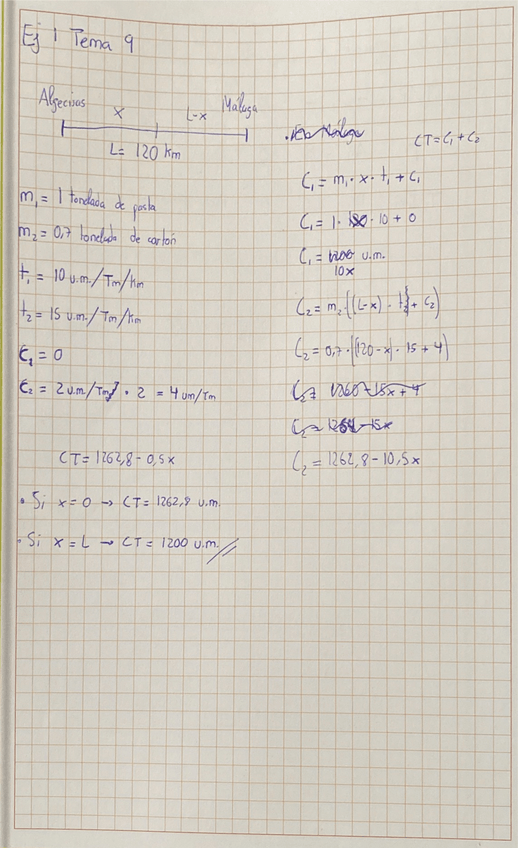 Ej 1 Tema 9
Algeciras x L-x Málaga
L = 120 Km
m₁ = 1 tonelada de pasta
m₂ = 0,7 tonelada de cartón
t₁ = 10 u.m./Tm/km
t₂ = 15 u.m./Tm/km
C₁ = 0
C₂ = 2 u.m/Tm · 2 = 4 um/Tm
CT = 1262,8 - 0,5x
• Si x = 0 → CT = 1262,8 u.m.
• Si x = L → CT = 1200 u.m.
CT = C₁ + C₂
C₁ = m₁ · x · t₁ + C₁
C₁ = 1 · · 10 + 0
C₁ = 1200 u.m.
10x
C₂ = m₂ · ((L-x) · t₂ + C₂)
C₂ = 0,7 · ((120-x) · 15 + 4)
C₂ = 1260 - 15x + 4
C₂ = - 15x
C₂ = 1262,8 - 10,5x